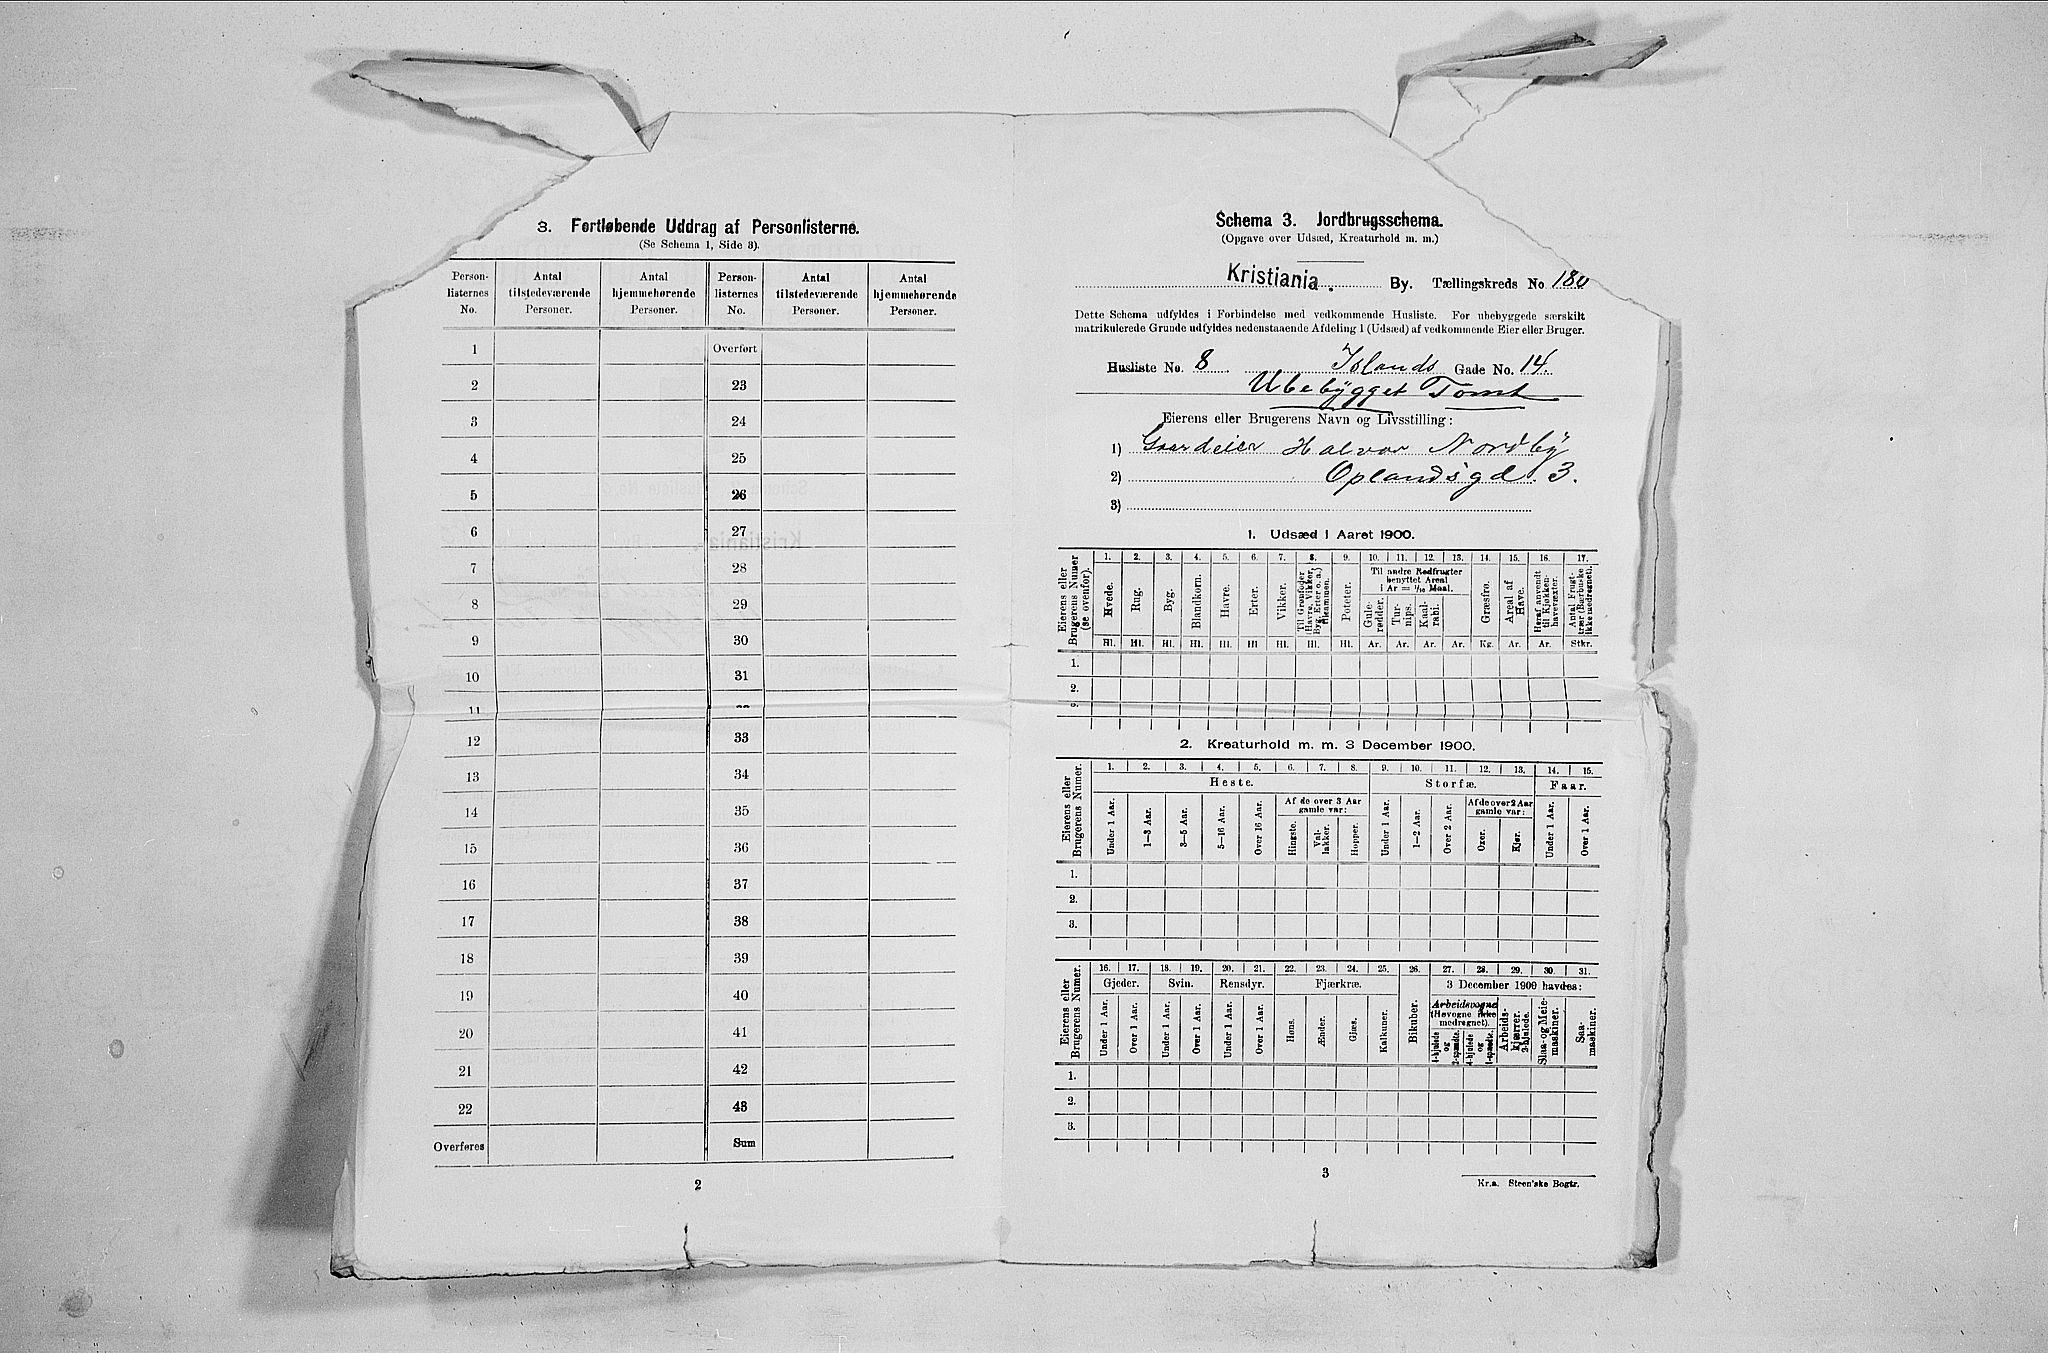 3. Fortløbende Uddrag af Personlisterne.
(Se Schema 1, Side 3).
Person-listernes No. | Antal tilstedeværende Personer. | Antal hjemmehørende Personer. | Person-listernes No. | Antal tilstedeværende Personer. | Antal hjemmehørende Personer.
1 Overført
2 23
3 24
4 25
5 26
6 27
7 28
8 29
9 30
10 31
11
12 33
13 34
14 35
15 36
16 37
17 38
18 39
19 40
20 41
21 42
22 43
Overføres Sum
2
Schema 3. Jordbrugsschema.
(Opgave over Udsæd, Kreaturhold m. m.)
Kristiania. By. Tællingskreds No 180
Dette Schema udfyldes i Forbindelse med vedkommende Husliste. For ubebyggede særskilt
matrikulerede Grunde udfyldes nedenstaaende Afdeling 1 (Udsæd) af vedkommende Eier eller Bruger.
Husliste No. 8 Islands Gade No. 14.
Ubebygget Tomt
Eierens eller Brugerens Navn og Livsstilling:
1) Gaardeier Halvor Nordby
2) Oplandsgd. 3.
3)
1. Udsæd i Aaret 1900.
Eierens eller Brugerens Numer (se ovenfor).
1. 2. 3. 4. 5. 6. 7. 8. 9. 10. 11. 12. 13. 14. 15. 16. 17.
Hvede. Rug. Byg. Blandkorn. Havre. Erter. Vikker. Til Grønfoder (Havre, Vikker, Byg, Erter o. a.) tilsammen. Poteter.
Til andre Rodfrugter benyttet Areal i Ar = 1/10 Maal.
Gule-rødder. Tur-nips. Kaal-rabi. Græsfrø. Areal af Have. Heraf anvendt til Kjøkken-havevæxter. Antal Frugt-trær (Bærbuske ikke medregnet).
Hl. Hl. Hl. Hl. Hl. Hl Hl. Hl. Hl. Ar. Ar. Ar. Ar. Kg. Ar. Ar. Stkr.
1.
2.
3.
2. Kreaturhold m. m. 3 December 1900.
Eierens eller Brugerens Numer.
1. 2. 3. 4. 5. 6. 7. 8. 9. 10. 11. 12. 13. 14. 15.
Heste. Storfæ. Faar.
Af de over 3 Aar gamle var: Af de over 2 Aar gamle var:
Under 1 Aar. 1—3 Aar. 3—5 Aar. 5—16 Aar. Over 16 Aar. Hingste. Val-lakker. Hopper. Under 1 Aar. 1—2 Aar. Over 2 Aar. Oxer. Kjør. Under 1 Aar. Over 1 Aar.
1.
2.
3.
Eierens eller Brugerens Numer.
16. 17. 18. 19. 20. 21. 22. 23. 24. 25. 26. 27. 28. 29. 30. 31.
Gjeder. Svin. Rensdyr. Fjærkræ. Bikuber. 3 December 1900 havdes:
Arbeidsvogne (Høvogne ikke medregnet).
Under 1 Aar. Over 1 Aar. Under 1 Aar. Over 1 Aar. Under 1 Aar. Over 1 Aar. Høns. Ænder. Gjæs. Kalkuner. 4-hjulede og 2-spændte. 4-hjulede og 1-spændte. Arbeids-kjærrer, 2-hjulede. Slaa- og Meie-maskiner. Saa-maskiner.
1.
2.
3.
3
Kr.a. Steen'ske Bogtr.